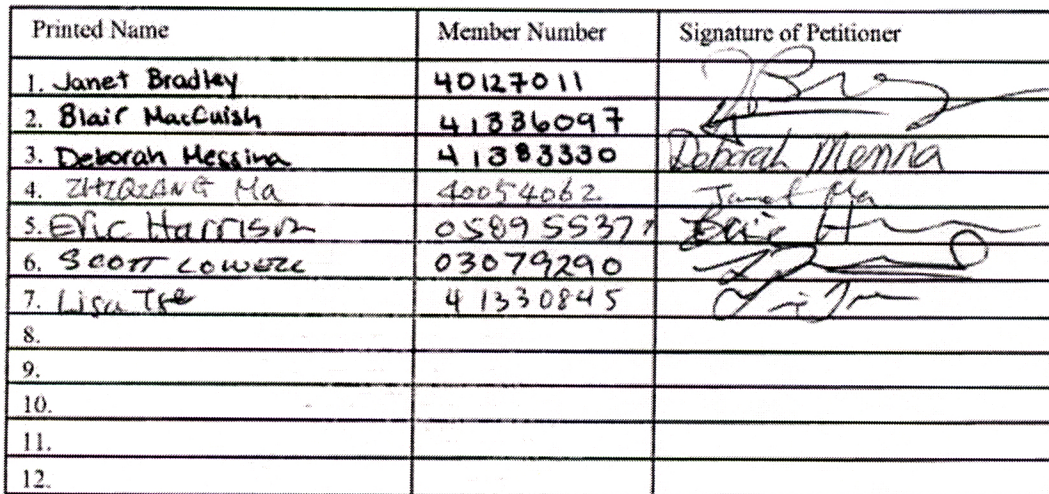 Printed Name Member Number Signature of Petitioner
1. Janet Bradley 40127011
2. Blair MacCuish 41336097
3. Deborah Messina 41383330 Deborah Messina
4. ZHIQIANG Ma 40054062
5. Eric Harrison Eric H
6. SCOTT LOWELL 03079290
7. Lisa Tse 41330845
8.
9.
10.
11.
12.